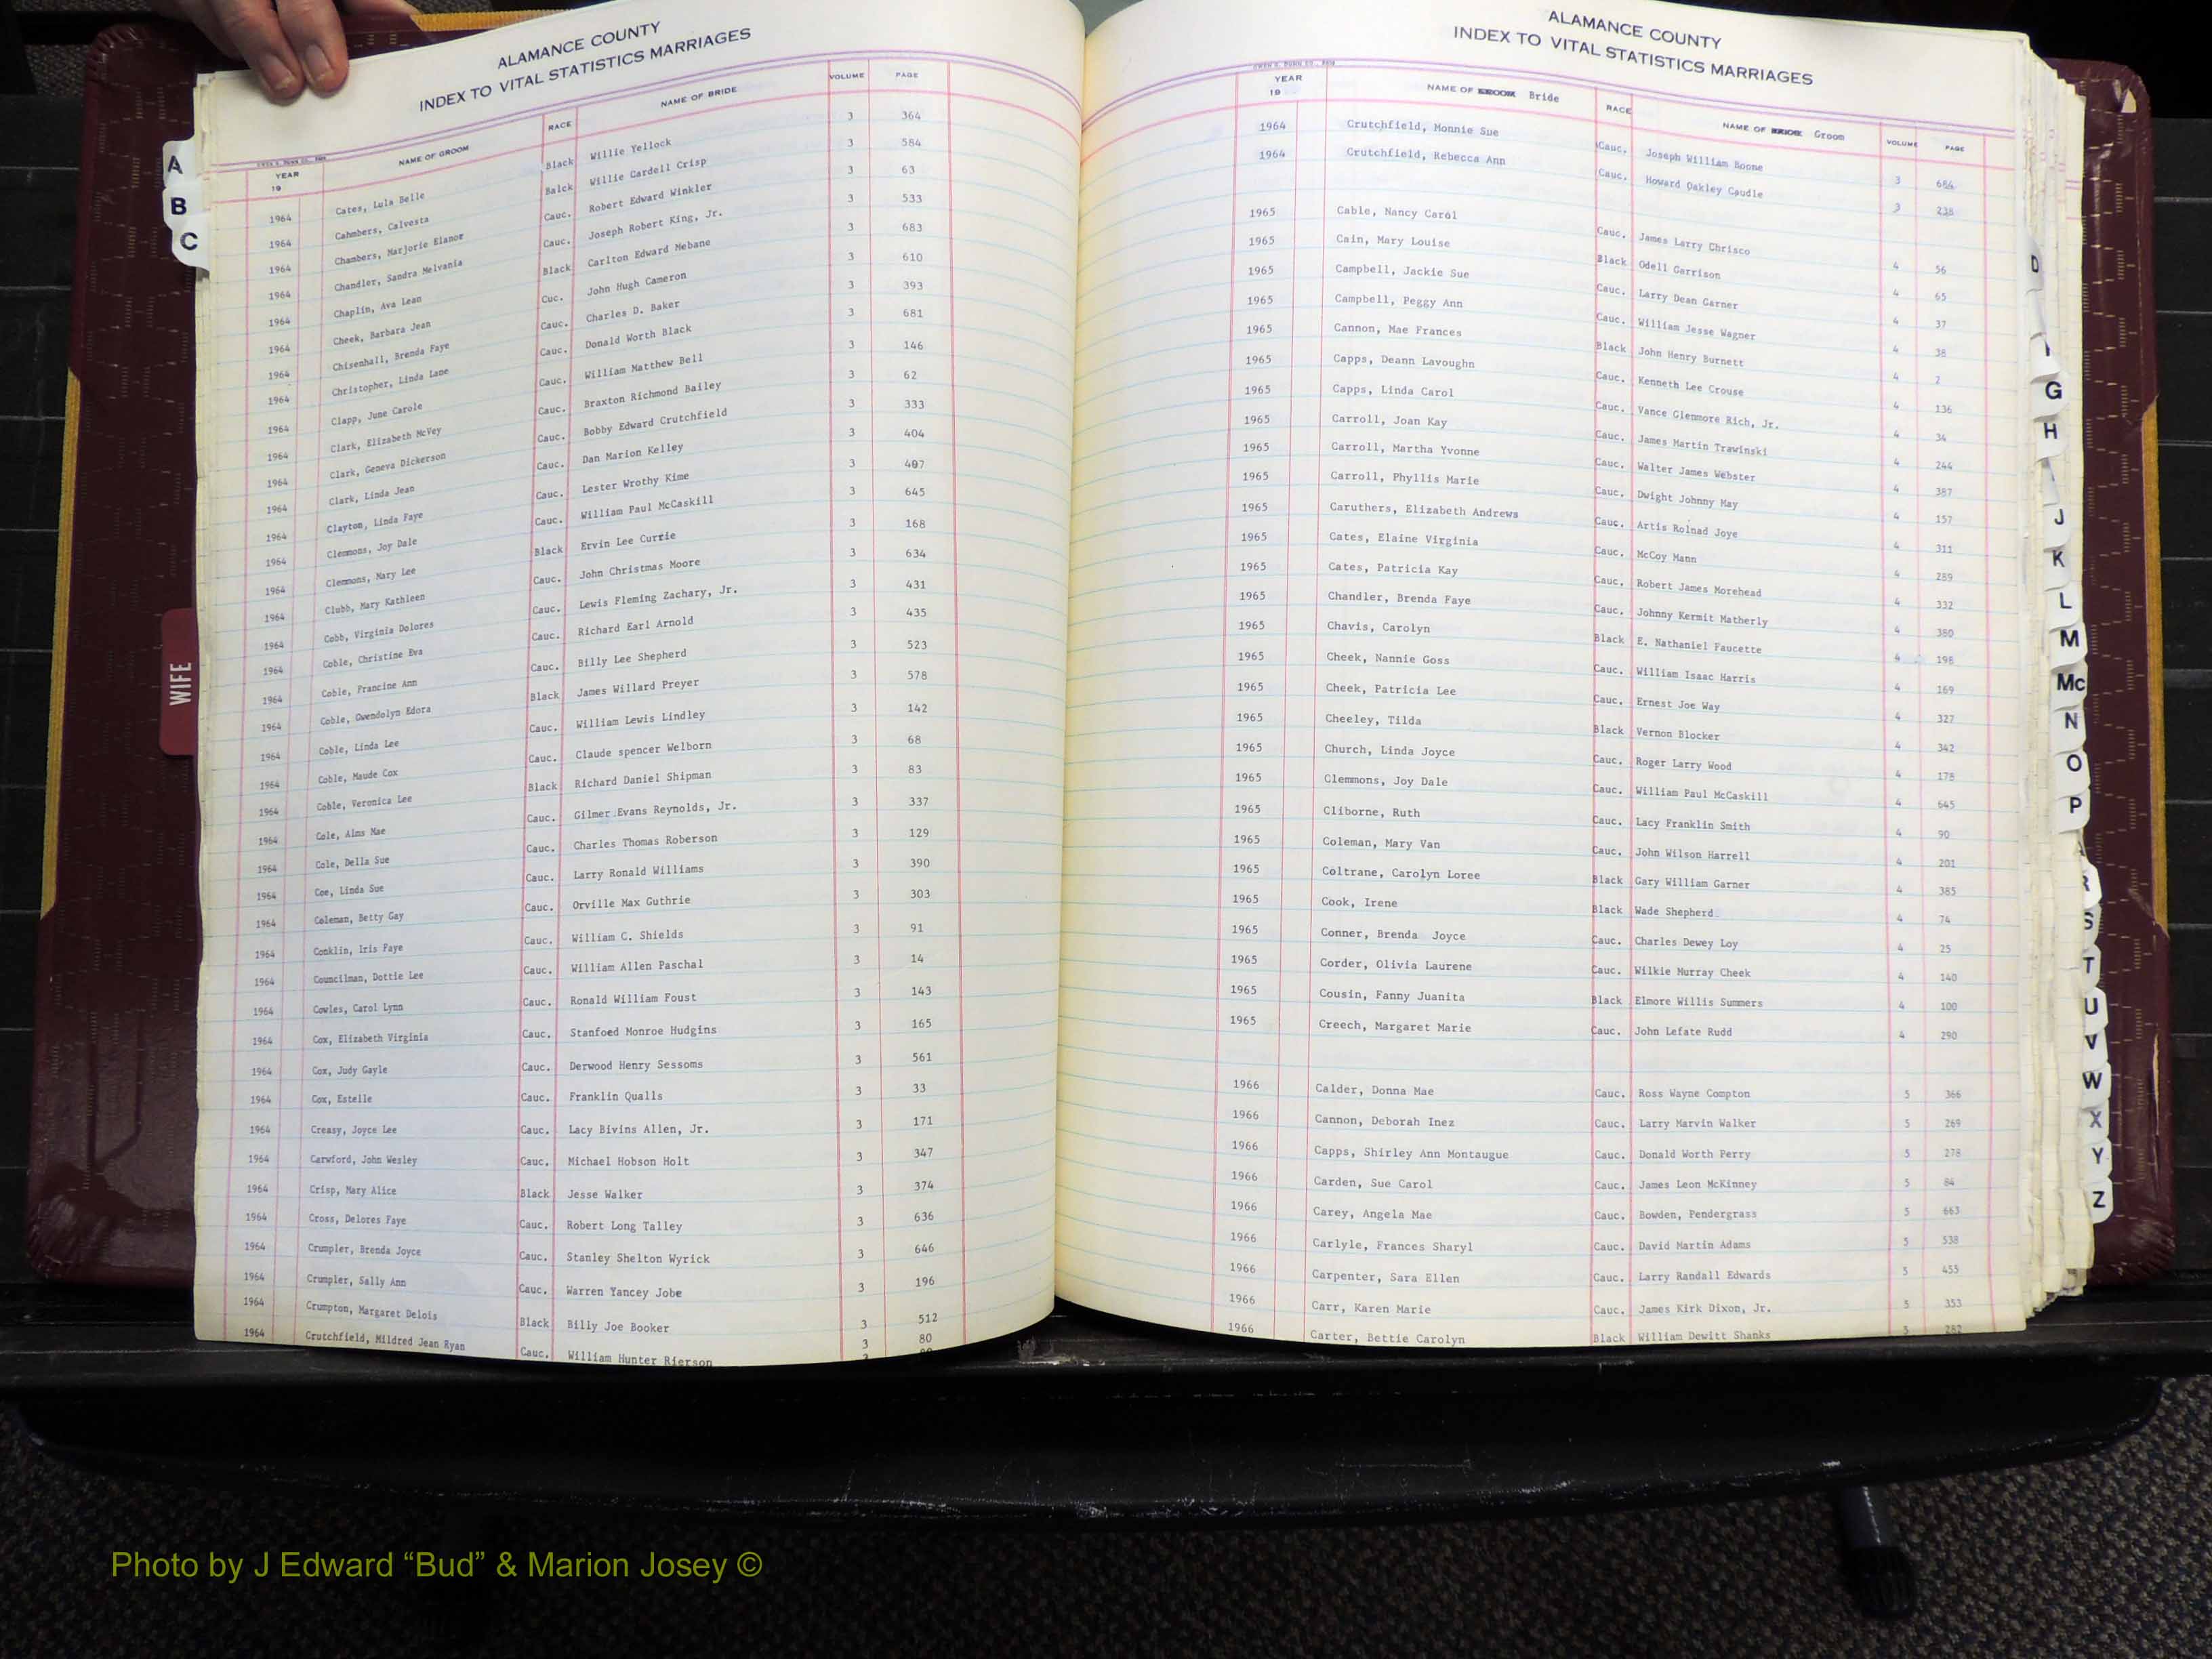 ALAMANCE COUNTY
INDEX TO VITAL STATISTICS MARRIAGES
YEAR 19 NAME OF GROOM RACE NAME OF BRIDE VOLUME PAGE
1964 Cates, Lula Belle Black Willie Yellock 3 364
1964 Cahmbers, Calvesta Balck Willie Cardell Crisp 3 584
1964 Chambers, Marjorie Elanor Cauc. Robert Edward Winkler 3 63
1964 Chandler, Sandra Melvania Cauc. Joseph Robert King, Jr. 3 533
1964 Chaplin, Ava Lean Black Carlton Edward Mebane 3 683
1964 Cheek, Barbara Jean Cuc. John Hugh Cameron 3 610
1964 Chisenhall, Brenda Faye Cauc. Charles D. Baker 3 393
1964 Christopher, Linda Lane Cauc. Donald Worth Black 3 681
1964 Clapp, June Carole Cauc. William Matthew Bell 3 146
1964 Clark, Elizabeth McVey Cauc. Braxton Richmond Bailey 3 62
1964 Clark, Geneva Dickerson Cauc. Bobby Edward Crutchfield 3 333
1964 Clark, Linda Jean Cauc. Dan Marion Kelley 3 404
1964 Clayton, Linda Faye Cauc. Lester Wrothy Kime 3 407
1964 Clemmons, Joy Dale Cauc. William Paul McCaskill 3 645
1964 Clemmons, Mary Lee Black Ervin Lee Currie 3 168
1964 Clubb, Mary Kathleen Cauc. John Christmas Moore 3 634
1964 Cobb, Virginia Dolores Cauc. Lewis Fleming Zachary, Jr. 3 431
1964 Coble, Christine Eva Cauc. Richard Earl Arnold 3 435
1964 Coble, Francine Ann Cauc. Billy Lee Shepherd 3 523
1964 Coble, Gwendolyn Edora Black James Willard Preyer 3 578
1964 Coble, Linda Lee Cauc. William Lewis Lindley 3 142
1964 Coble, Maude Cox Cauc. Claude spencer Welborn 3 68
1964 Coble, Veronica Lee Black Richard Daniel Shipman 3 83
1964 Cole, Alma Mae Cauc. Gilmer Evans Reynolds, Jr. 3 337
1964 Cole, Della Sue Cauc. Charles Thomas Roberson 3 129
1964 Coe, Linda Sue Cauc. Larry Ronald Williams 3 390
1964 Coleman, Betty Gay Cauc. Orville Max Guthrie 3 303
1964 Conklin, Iris Faye Cauc. William C. Shields 3 91
1964 Councilman, Dottie Lee Cauc. William Allen Paschal 3 14
1964 Cowles, Carol Lynn Cauc. Ronald William Foust 3 143
1964 Cox, Elizabeth Virginia Cauc. Stanfoed Monroe Hudgins 3 165
1964 Cox, Judy Gayle Cauc. Derwood Henry Sessoms 3 561
1964 Cox, Estelle Cauc. Franklin Qualls 3 33
1964 Creasy, Joyce Lee Cauc. Lacy Bivins Allen, Jr. 3 171
1964 Carwford, John Wesley Cauc. Michael Hobson Holt 3 347
1964 Crisp, Mary Alice Black Jesse Walker 3 374
1964 Cross, Delores Faye Cauc. Robert Long Talley 3 636
1964 Crumpler, Brenda Joyce Cauc. Stanley Shelton Wyrick 3 646
1964 Crumpler, Sally Ann Cauc. Warren Yancey Jobe 3 196
1964 Crumpton, Margaret Delois Black Billy Joe Booker 3 512
1964 Crutchfield, Mildred Jean Ryan Cauc. William Hunter Rierson 3 80
ALAMANCE COUNTY
INDEX TO VITAL STATISTICS MARRIAGES
YEAR 19 NAME OF Bride RACE NAME OF Groom VOLUME PAGE
1964 Crutchfield, Monnie Sue Cauc. Joseph William Boone 3 684
1964 Crutchfield, Rebecca Ann Cauc. Howard Oakley Caudle 3 238
1965 Cable, Nancy Carol Cauc. James Larry Chrisco 4 56
1965 Cain, Mary Louise Black Odell Garrison 4 65
1965 Campbell, Jackie Sue Cauc. Larry Dean Garner 4 37
1965 Campbell, Peggy Ann Cauc. William Jesse Wagner 4 38
1965 Cannon, Mae Frances Black John Henry Burnett 4 2
1965 Capps, Deann Lavoughn Cauc. Kenneth Lee Crouse 4 136
1965 Capps, Linda Carol Cauc. Vance Glenmore Rich, Jr. 4 34
1965 Carroll, Joan Kay Cauc. James Martin Trawinski 4 244
1965 Carroll, Martha Yvonne Cauc. Walter James Webster 4 387
1965 Carroll, Phyllis Marie Cauc. Dwight Johnny May 4 157
1965 Caruthers, Elizabeth Andrews Cauc. Artis Rolnad Joye 4 311
1965 Cates, Elaine Virginia Cauc. McCoy Mann 4 289
1965 Cates, Patricia Kay Cauc. Robert James Morehead 4 332
1965 Chandler, Brenda Faye Cauc. Johnny Kermit Matherly 4 380
1965 Chavis, Carolyn Black E. Nathaniel Faucette 4 198
1965 Cheek, Nannie Goss Cauc. William Isaac Harris 4 169
1965 Cheek, Patricia Lee Cauc. Ernest Joe Way 4 327
1965 Cheeley, Tilda Black Vernon Blocker 4 342
1965 Church, Linda Joyce Cauc. Roger Larry Wood 4 178
1965 Clemmons, Joy Dale Cauc. William Paul McCaskill 4 645
1965 Cliborne, Ruth Cauc. Lacy Franklin Smith 4 90
1965 Coleman, Mary Van Cauc. John Wilson Harrell 4 201
1965 Coltrane, Carolyn Loree Black Gary William Garner 4 385
1965 Cook, Irene Black Wade Shepherd 4 74
1965 Conner, Brenda Joyce Cauc. Charles Dewey Loy 4 25
1965 Corder, Olivia Laurene Cauc. Wilkie Murray Cheek 4 140
1965 Cousin, Fanny Juanita Black Elmore Willis Summers 4 100
1965 Creech, Margaret Marie Cauc. John Lefate Rudd 4 290
1966 Calder, Donna Mae Cauc. Ross Wayne Compton 5 366
1966 Cannon, Deborah Inez Cauc. Larry Marvin Walker 5 269
1966 Capps, Shirley Ann Montaugue Cauc. Donald Worth Perry 5 278
1966 Carden, Sue Carol Cauc. James Leon McKinney 5 84
1966 Carey, Angela Mae Cauc. Bowden, Pendergrass 5 663
1966 Carlyle, Frances Sharyl Cauc. David Martin Adams 5 538
1966 Carpenter, Sara Ellen Cauc. Larry Randall Edwards 5 455
1966 Carr, Karen Marie Cauc. James Kirk Dixon, Jr. 5 353
1966 Carter, Bettie Carolyn Black William Dewitt Shanks 5 282
A
B
C
WIFE
D
G
H
J
K
L
M
Mc
N
O
P
R
S
T
U
V
W
X
Y
Z
Photo by J Edward “Bud” & Marion Josey ©